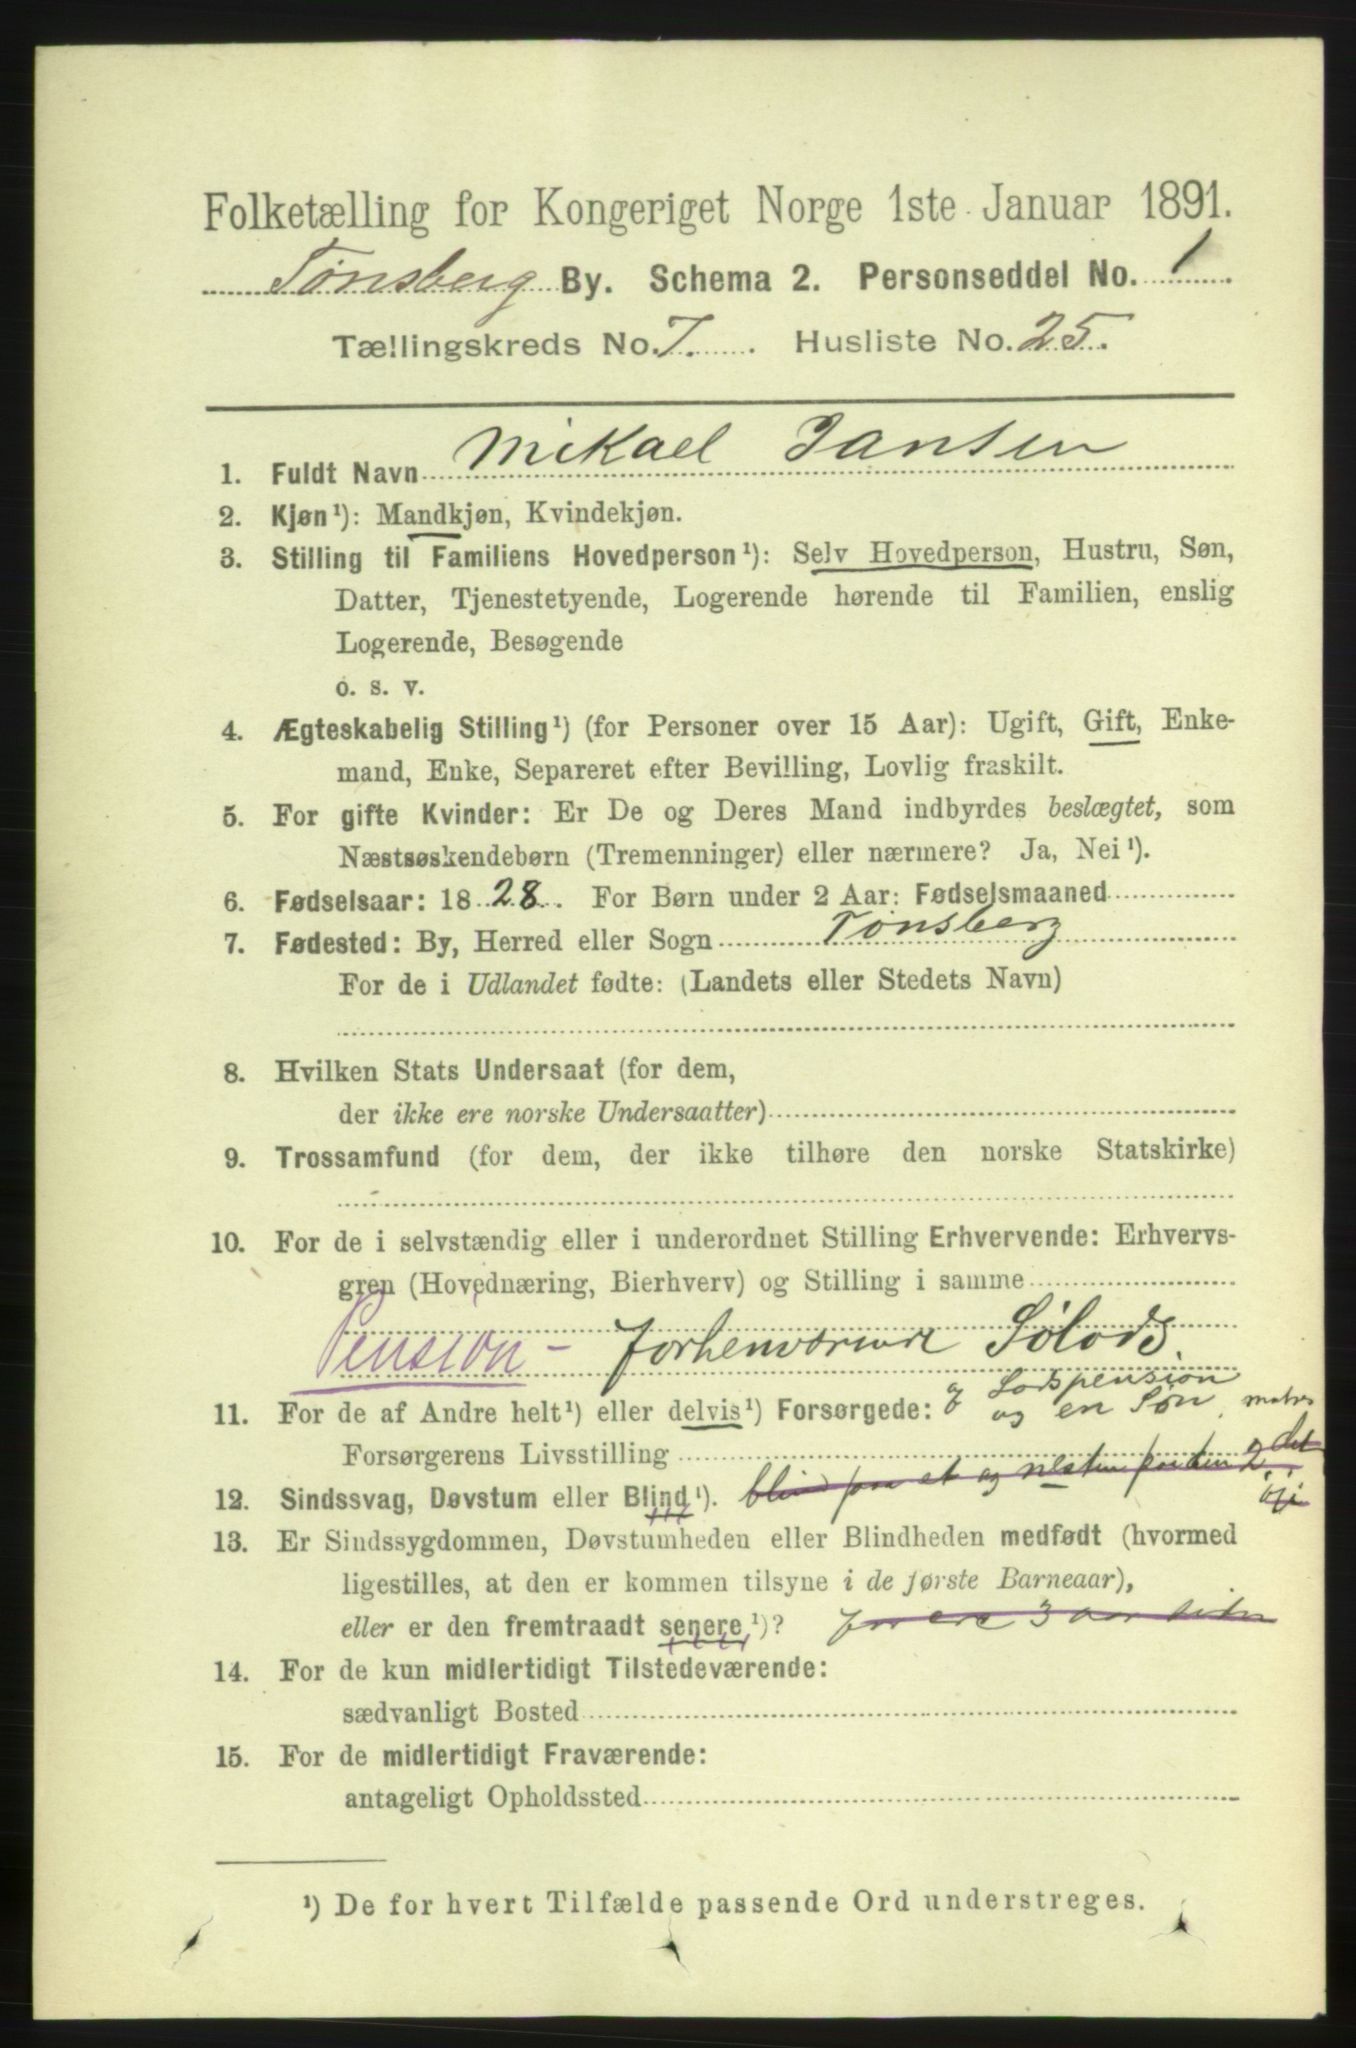 Folketælling for Kongeriget Norge 1ste Januar 1891.
Tønsberg By. Schema 2. Personseddel No. 1
Tællingskreds No. 7. Husliste No. 25.
1. Fuldt Navn Mikael Jansen
2. Kjøn¹): Mandkjøn, Kvindekjøn.
3. Stilling til Familiens Hovedperson¹): Selv Hovedperson, Hustru, Søn,
Datter, Tjenestetyende, Logerende hørende til Familien, enslig
Logerende, Besøgende
o. s. v.
4. Ægteskabelig Stilling¹) (for Personer over 15 Aar): Ugift, Gift, Enke-
mand, Enke, Separeret efter Bevilling, Lovlig fraskilt.
5. For gifte Kvinder: Er De og Deres Mand indbyrdes beslægtet, som
Næstsøskendebørn (Tremenninger) eller nærmere? Ja, Nei¹).
6. Fødselsaar: 1828. For Børn under 2 Aar: Fødselsmaaned
7. Fødested: By, Herred eller Sogn Tønsberg
For de i Udlandet fødte: (Landets eller Stedets Navn)
8. Hvilken Stats Undersaat (for dem,
der ikke ere norske Undersaatter)
9. Trossamfund (for dem, der ikke tilhøre den norske Statskirke)
10. For de i selvstændig eller i underordnet Stilling Erhvervende: Erhvervs-
gren (Hovednæring, Bierhverv) og Stilling i samme
Pension - forhenværende Sølods.
11. For de af Andre helt¹) eller delvis¹) Forsørgede: af Lodspension
og en Søn
Forsørgerens Livsstilling
12. Sindssvag, Døvstum eller Blind¹). blind paa et og nesten paa den 2det
øje
13. Er Sindssygdommen, Døvstumheden eller Blindheden medfødt (hvormed
ligestilles, at den er kommen tilsyne i de første Barneaar),
eller er den fremtraadt senere¹)? 3 aar siden
14. For de kun midlertidigt Tilstedeværende:
sædvanligt Bosted
15. For de midlertidigt Fraværende:
antageligt Opholdssted
¹) De for hvert Tilfælde passende Ord understreges.